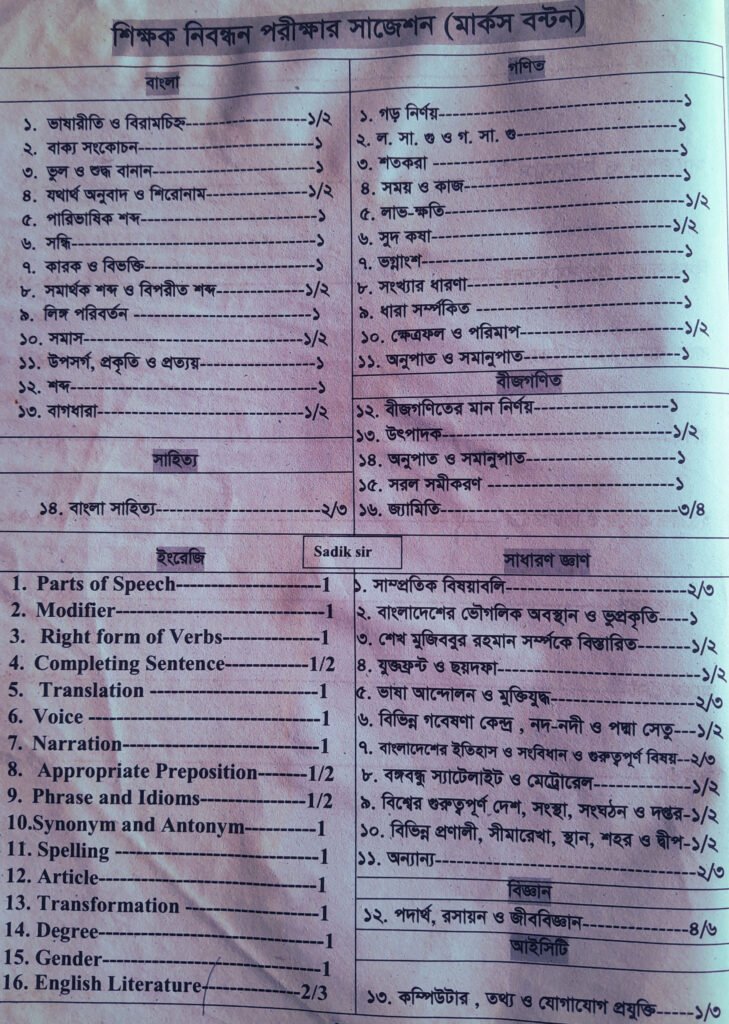 শিক্ষক নিবন্ধন পরীক্ষার সাজেশন (মার্কস বন্টন)
বাংলা
১. ভাষারীতি ও বিরামচিহ্ন--------------------১/২
২. বাক্য সংকোচন-------------------------------১
৩. ভুল ও শুদ্ধ বানান----------------------------১
৪. যথার্থ অনুবাদ ও শিরোনাম----------------১/২
৫. পারিভাষিক শব্দ------------------------------১
৬. সন্ধি-------------------------------------------১
৭. কারক ও বিভক্তি-----------------------------১
৮. সমার্থক শব্দ ও বিপরীত শব্দ---------------১/২
৯. লিঙ্গ পরিবর্তন --------------------------------১
১০. সমাস----------------------------------------১/২
১১. উপসর্গ, প্রকৃতি ও প্রত্যয়-------------------১
১২. শব্দ------------------------------------------১
১৩. বাগধারা------------------------------------১/২
সাহিত্য
১৪. বাংলা সাহিত্য-----------------------------২/৩
গণিত
১. গড় নির্ণয়--------------------------------------১
২. ল. সা. গু ও গ. সা. গু---------------------------১
৩. শতকরা ----------------------------------------১
৪. সময় ও কাজ-----------------------------------১
৫. লাভ-ক্ষতি-------------------------------------১/২
৬. সুদ কষা---------------------------------------১/২
৭. ভগ্নাংশ-----------------------------------------১
৮. সংখ্যার ধারণা---------------------------------১
৯. ধারা সর্ম্পকিত --------------------------------১
১০. ক্ষেত্রফল ও পরিমাপ-------------------------১/২
১১. অনুপাত ও সমানুপাত-------------------------১
বীজগণিত
১২. বীজগণিতের মান নির্ণয়---------------------১
১৩. উৎপাদক------------------------------------১/২
১৪. অনুপাত ও সমানুপাত------------------------১
১৫. সরল সমীকরণ -------------------------------১
১৬. জ্যামিতি------------------------------------৩/৪
Sadik sir
ইংরেজি
1. Parts of Speech--------------------1
2. Modifier----------------------------1
3. Right form of Verbs-------------1
4. Completing Sentence-----------1/2
5. Translation ------------------------1
6. Voice --------------------------------1
7. Narration---------------------------1
8. Appropriate Preposition-------1/2
9. Phrase and Idioms--------------1/2
10.Synonym and Antonym---------1
11. Spelling ---------------------------1
12. Article-----------------------------1
13. Transformation -----------------1
14. Degree-----------------------------1
15. Gender-----------------------------1
16. English Literature-------------2/3
সাধারণ জ্ঞান
১. সাম্প্রতিক বিষয়াবলি--------------------------২/৩
২. বাংলাদেশের ভৌগলিক অবস্থান ও ভূপ্রকৃতি----১
৩. শেখ মুজিববুর রহমান সর্ম্পকে বিস্তারিত--------১/২
৪. যুক্তফ্রন্ট ও ছয়দফা-----------------------------১/২
৫. ভাষা আন্দোলন ও মুক্তিযুদ্ধ--------------------২/৩
৬. বিভিন্ন গবেষণা কেন্দ্র , নদ-নদী ও পদ্মা সেতু---১/২
৭. বাংলাদেশের ইতিহাস ও সংবিধান ও গুরুত্বপূর্ণ বিষয়--২/৩
৮. বঙ্গবন্ধু স্যাটেলাইট ও মেট্রোরেল---------------১/২
৯. বিশ্বের গুরুত্বপূর্ণ দেশ, সংস্থা, সংঘঠন ও দপ্তর-১/২
১০. বিভিন্ন প্রণালী, সীমারেখা, স্থান, শহর ও দ্বীপ-১/২
১১. অন্যান্য--------------------------------------২/৩
বিজ্ঞান
১২. পদার্থ, রসায়ন ও জীববিজ্ঞান----------------৪/৬
আইসিটি
১৩. কম্পিউটার , তথ্য ও যোগাযোগ প্রযুক্তি------১/৩